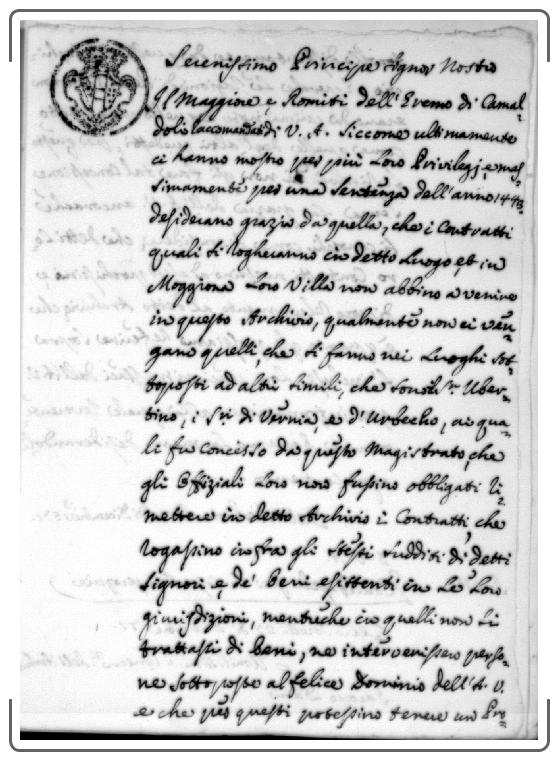 Serenissimo Principe Signor Nostro
Il Maggiore e Romiti dell'Eremo di Camal=
doli raccomandati di V. A. Siccome ultimamente
ci hanno mostro per più Loro Privilegj, e mas=
simamenti per una Sentenza dell'anno 1443
desiderano grazia da quella, che i Contratti
quali si rogheranno in detto Luogo, et in
Moggiona Loro Villa non abbino a venire
in questo Archivio, qualmente non ci ven=
gano quelli, che si fanno nei Luoghi Sot=
toposti ad altri simili, che sono il Sr. Uber=
tino, i Sri. di Vernia, e d'Urbecho, ai qua=
li fu concesso da questo Magistrato, che
gli Offiziali Loro non fussino obbligati ri=
mettere in detto Archivio i Contratti, che
rogassino infra gli Stessi Sudditi di detti
Signori e de' Beni esistenti in Le Loro
giurisdizioni, mentreche in quelli non si
trattassi di Beni, ne intervenissero perso=
ne sottoposte al felice Dominio dell'A. V.
e che per questi potessino tenere un Pro=